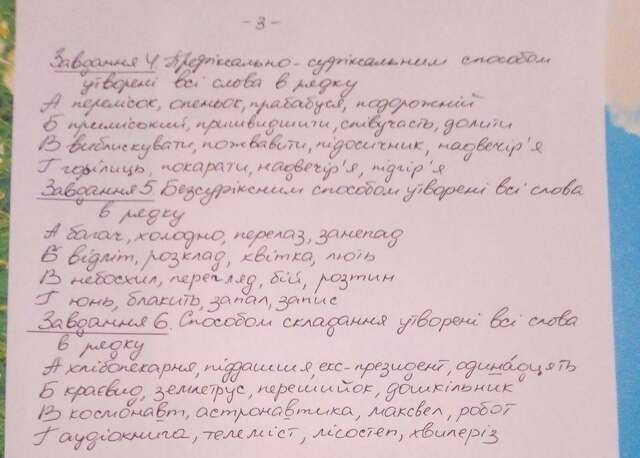 - 3 -
Завдання 4 Префіксально-суфіксальним способом
утворені всі слова в рядку
А перелісок, опеньок, прабабуся, подорожній
Б приміський, пришвидшити, співучасть, долити
В виблискувати, пожвавити, підосичник, надвечір'я
Г горілиць, покарати, надвечір'я, підгір'я
Завдання 5 Безсуфіксним способом утворені всі слова
в рядку
А багач, холодно, перелаз, занепад
Б відліт, розклад, квітка, лють
В небосхил, перегляд, бій, розтин
Г юнь, блакить, запал, запис
Завдання 6. Способом складання утворені всі слова
в рядку
А хлібопекарня, піддашшя, екс-президент, одинадцять
Б краєвид, землетрус, перешийок, дошкільник
В космонавт, астронавтика, максвел, робот
Г аудіокнига, телеміст, лісостеп, хвилеріз